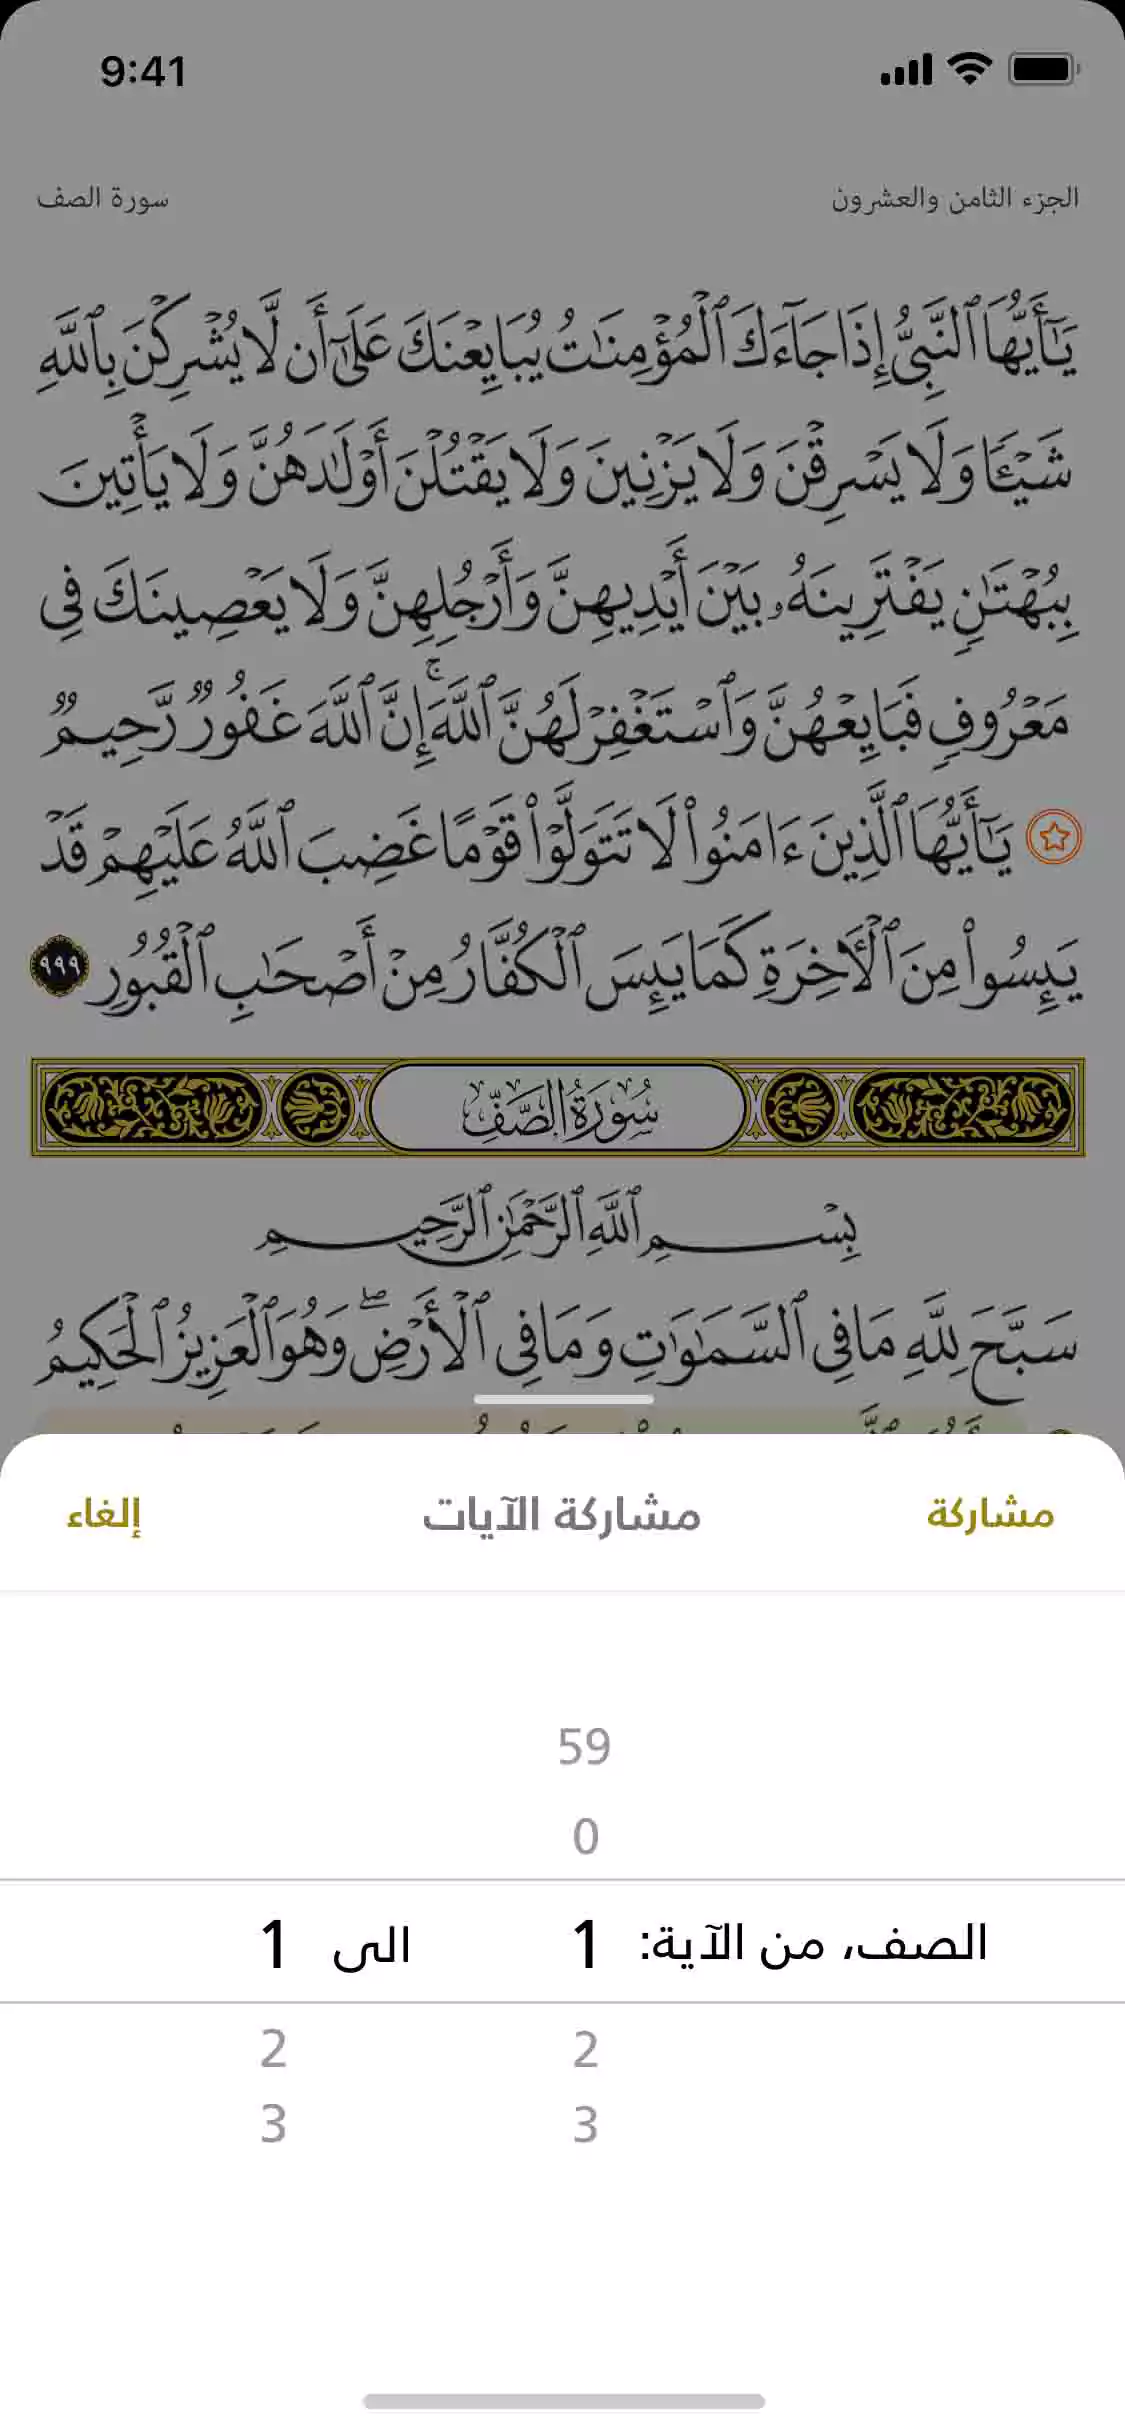 9:41
الجزء الثامن والعشرون
سورة الصف
يَٰٓأَيُّهَا ٱلنَّبِيُّ إِذَا جَآءَكَ ٱلْمُؤْمِنَٰتُ يُبَايِعْنَكَ عَلَىٰٓ أَن لَّا يُشْرِكْنَ بِٱللَّهِ
شَيْـًٔا وَلَا يَسْرِقْنَ وَلَا يَزْنِينَ وَلَا يَقْتُلْنَ أَوْلَٰدَهُنَّ وَلَا يَأْتِينَ
بِبُهْتَٰنٍ يَفْتَرِينَهُۥ بَيْنَ أَيْدِيهِنَّ وَأَرْجُلِهِنَّ وَلَا يَعْصِينَكَ فِى
مَعْرُوفٍ فَبَايِعْهُنَّ وَٱسْتَغْفِرْ لَهُنَّ ٱللَّهَ ۚ إِنَّ ٱللَّهَ غَفُورٌ رَّحِيمٌ
يَٰٓأَيُّهَا ٱلَّذِينَ ءَامَنُوا۟ لَا تَتَوَلَّوْا۟ قَوْمًا غَضِبَ ٱللَّهُ عَلَيْهِمْ قَدْ
يَئِسُوا۟ مِنَ ٱلْـَٔاخِرَةِ كَمَا يَئِسَ ٱلْكُفَّارُ مِنْ أَصْحَٰبِ ٱلْقُبُورِ ٩٩٩
سُورَةُ الصَّفِّ
بِسْمِ ٱللَّهِ ٱلرَّحْمَٰنِ ٱلرَّحِيمِ
سَبَّحَ لِلَّهِ مَا فِى ٱلسَّمَٰوَٰتِ وَمَا فِى ٱلْأَرْضِ ۖ وَهُوَ ٱلْعَزِيزُ ٱلْحَكِيمُ
مشاركة
مشاركة الآيات
إلغاء
59
0
الصف، من الآية: 1 الى 1
2 2
3 3